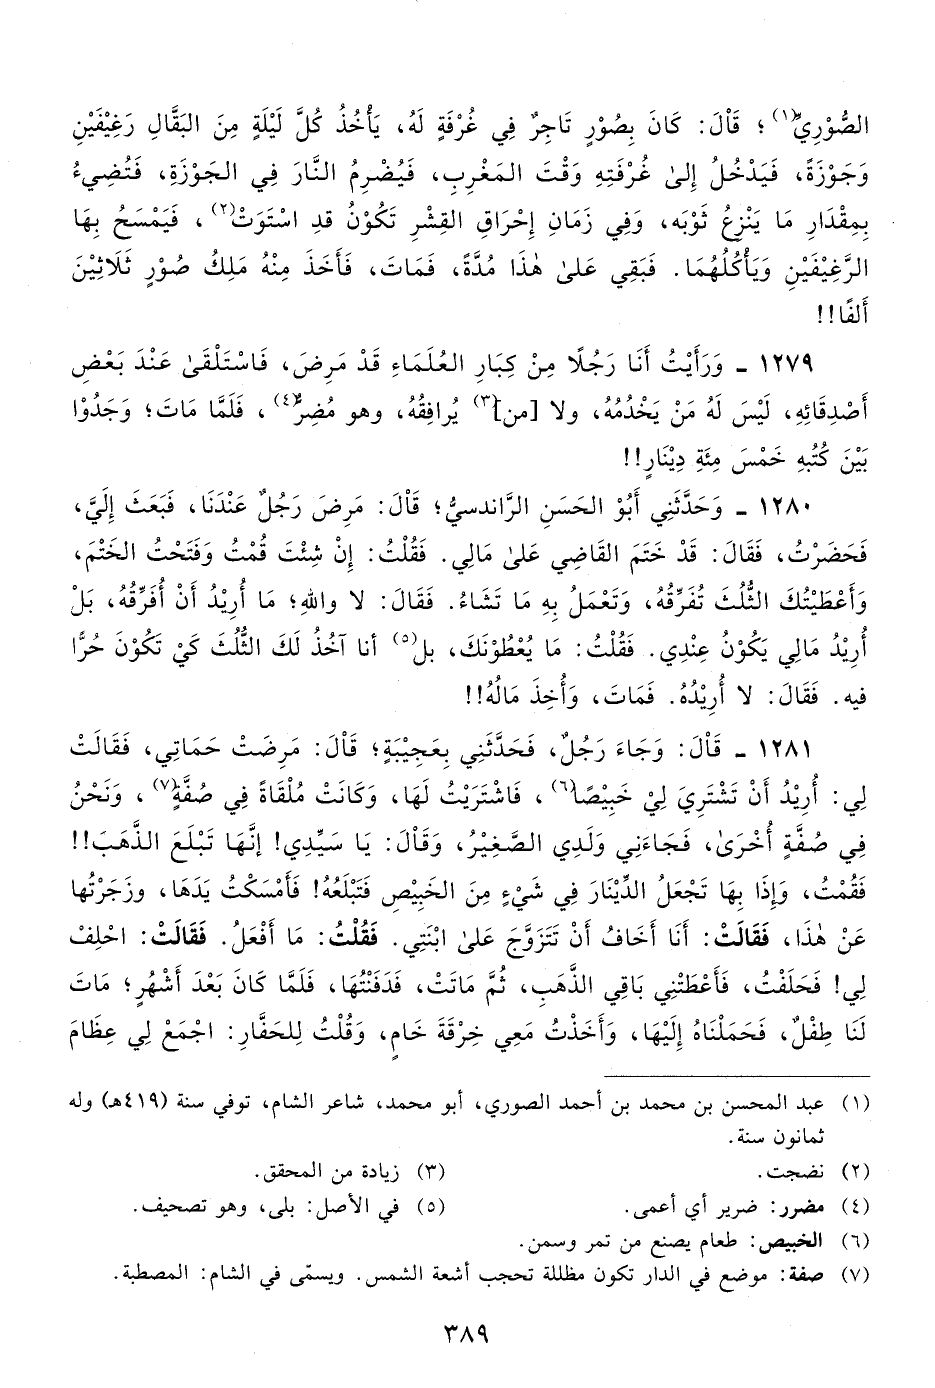 الصُّوْرِيُّ(١)؛ قَاْلَ: كَانَ بِصُوْرٍ تَاجِرٌ فِي غُرْفَةٍ لَهُ، يَأْخُذُ كُلَّ لَيْلَةٍ مِنَ البَقَّالِ رَغِيْفَيْنِ
وَجَوْزَةً، فَيَدْخُلُ إِلىٰ غُرْفَتِهِ وَقْتَ المَغْرِبِ، فَيُضْرِمُ النَّارَ فِي الجَوْزَةِ، فَتُضِيءُ
بِمِقْدَارِ مَا يَنْزِعُ ثَوْبَه، وَفِي زَمَانِ إِحْرَاقِ القِشْرِ تَكُوْنُ قدِ اسْتَوَتْ(٢)، فَيَمْسَحُ بِهَا
الرَّغِيْفَيْنِ وَيَأْكُلُهُمَا. فَبَقِي عَلىٰ هٰذَا مُدَّةً، فَمَاتَ، فَأَخَذَ مِنْهُ مَلِكُ صُوْرٍ ثَلَاثِيْنَ
أَلفًا!!
١٢٧٩ ـ وَرَأَيْتُ أَنَا رَجُلًا مِنْ كِبَارِ العُلَمَاءِ قَدْ مَرِضَ، فَاسْتَلْقَىٰ عَنْدَ بَعْضِ
أَصْدِقَائِهِ، لَيْسَ لَهُ مَنْ يَخْدُمُهُ، ولا [من](٣) يُرافِقُهُ، وهو مُضِرٌّ(٤)، فَلَمَّا مَاتَ؛ وَجَدُوْا
بَيْنَ كُتُبِهِ خَمْسَ مِئَةِ دِيْنَارٍ!!
١٢٨٠ ـ وَحَدَّثَنِي أَبُوْ الحَسَنِ الرَّاندسيُّ؛ قَالَ: مَرِضَ رَجُلٌ عَنْدَنَا، فَبَعَثَ إِلَيَّ،
فَحَضَرْتُ، فَقَالَ: قَدْ خَتَمَ القَاضِي عَلىٰ مَالِي. فَقُلْتُ: إِنْ شِئْتَ قُمْتُ وَفَتَحْتُ الخَتْمَ،
وَأَعْطَيْتُكَ الثُّلُثَ تُفَرِّقُهُ، وَتَعْمَلُ بِهِ مَا تَشَاءُ. فَقَالَ: لا واللهِ؛ مَا أُرِيْدُ أَنْ أُفَرِّقَهُ، بَلْ
أُرِيْدُ مَالِي يَكُوْنُ عِنْدِي. فَقُلْتُ: مَا يُعْطُوْنَكَ، بل(٥) أنا آخُذُ لَكَ الثُّلُثَ كَيْ تَكُوْنَ حُرًّا
فيه. فَقَالَ: لا أُرِيْدُهُ. فَمَاتَ، وَأُخِذَ مَالُهُ!!
١٢٨١ ـ قَاْلَ: وَجَاءَ رَجُلٌ، فَحَدَّثَنِي بِعَجِيْبَةٍ؛ قَاْلَ: مَرِضَتْ حَمَاتِي، فَقَالَتْ
لِي: أُرِيْدُ أَنْ تَشْتَرِيَ لِيْ خَبِيْصًا(٦)، فَاشْتَرَيْتُ لَهَا، وَكَانَتْ مُلْقَاةً فِي صُفَّةٍ(٧)، وَنَحْنُ
فِي صُفَّةٍ أُخْرَىٰ، فَجَاءَنِي وَلَدِي الصَّغِيْرُ، وَقَاْلَ: يَا سَيِّدِي! إِنَّهَا تَبْلَعُ الذَّهَبَ!!
فَقُمْتُ، وَإِذَا بِهَا تَجْعَلُ الدِّيْنَارَ فِي شَيْءٍ مِنَ الخَبِيْصِ فَتَبْلَعُهُ! فَأَمْسَكْتُ يَدَهَا، وزَجَرْتُها
عَنْ هٰذَا، فَقَالَتْ: أَنَا أَخَافُ أَنْ تَتَزَوَّجَ عَلىٰ ابْنَتِي. فَقُلْتُ: مَا أَفْعَلُ. فَقَالَتْ: احْلِفْ
لِي! فَحَلَفْتُ، فَأَعْطَتْنِي بَاقِي الذَّهَبِ، ثُمَّ مَاتَتْ، فَدَفَنْتُهَا، فَلَمَّا كَانَ بَعْدَ أَشْهُرٍ؛ مَاتَ
لَنَا طِفْلٌ، فَحَمَلْنَاهُ إِلَيْهَا، وَأَخَذْتُ مَعِي خِرْقَةَ خَامٍ، وَقُلْتُ لِلحَفَّارِ: اجْمَعْ لِي عِظَامَ
(١) عبد المحسن بن محمد بن أحمد الصوري، أبو محمد، شاعر الشام، توفي سنة (٤١٩هـ) وله
ثمانون سنة.
(٢) نضجت. (٣) زيادة من المحقق.
(٤) مضرر: ضرير أي أعمى. (٥) في الأصل: بلى، وهو تصحيف.
(٦) الخبيص: طعام يصنع من تمر وسمن.
(٧) صفة: موضع في الدار تكون مظللة تحجب أشعة الشمس. ويسمّى في الشام: المصطبة.
٣٨٩